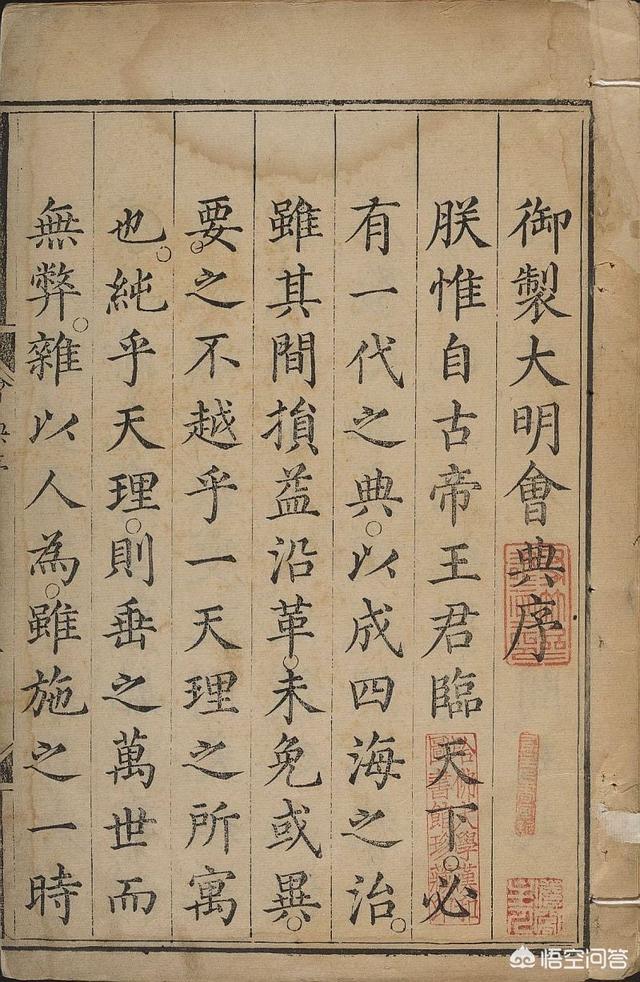 御製大明會典序
朕惟自古帝王君臨天下。必
有一代之典。以成四海之治。
雖其間損益沿革。未免或異。
要之不越乎一天理之所寓
也。純乎天理。則垂之萬世而
無弊。雜以人為。雖施之一時
悟空问答